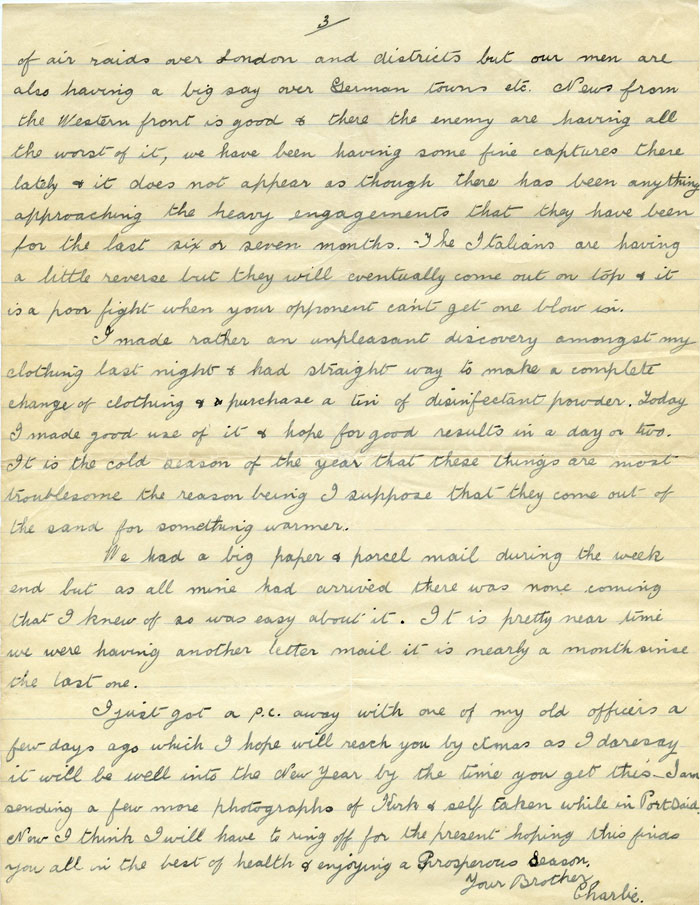 3
of air raids over London and districts but our men are
also having a big say over German towns etc. News from
the Western front is good & there the enemy are having all
the worst of it, we have been having some fine captures there
lately & it does not appear as though there has been anything
approaching the heavy engagements that they have been
for the last six or seven months. The Italians are having
a little reverse but they will eventually come out on top & it
is a poor fight when your opponent can't get one blow in.
I made rather an unpleasant discovery amongst my
clothing last night & had straight way to make a complete
change of clothing & purchase a tin of disinfectant powder. Today
I made good use of it & hope for good results in a day or two.
It is the cold season of the year that these things are most
troublesome the reason being I suppose that they come out of
the sand for something warmer.
We had a big paper & parcel mail during the week
end but as all mine had arrived there was none coming
that I knew of so was easy about it. It is pretty near time
we were having another letter mail it is nearly a month since
the last one.
I just got a p.c. away with one of my old officers a
few days ago which I hope will reach you by Xmas as I daresay
it will be well into the New Year by the time you get this - I am
sending a few more photographs of Kirk & self taken while in Port Said.
Now I think I will have to ring off for the present hoping this finds
you all in the best of health & enjoying a Prosperous Season.
Your Brother
Charlie.